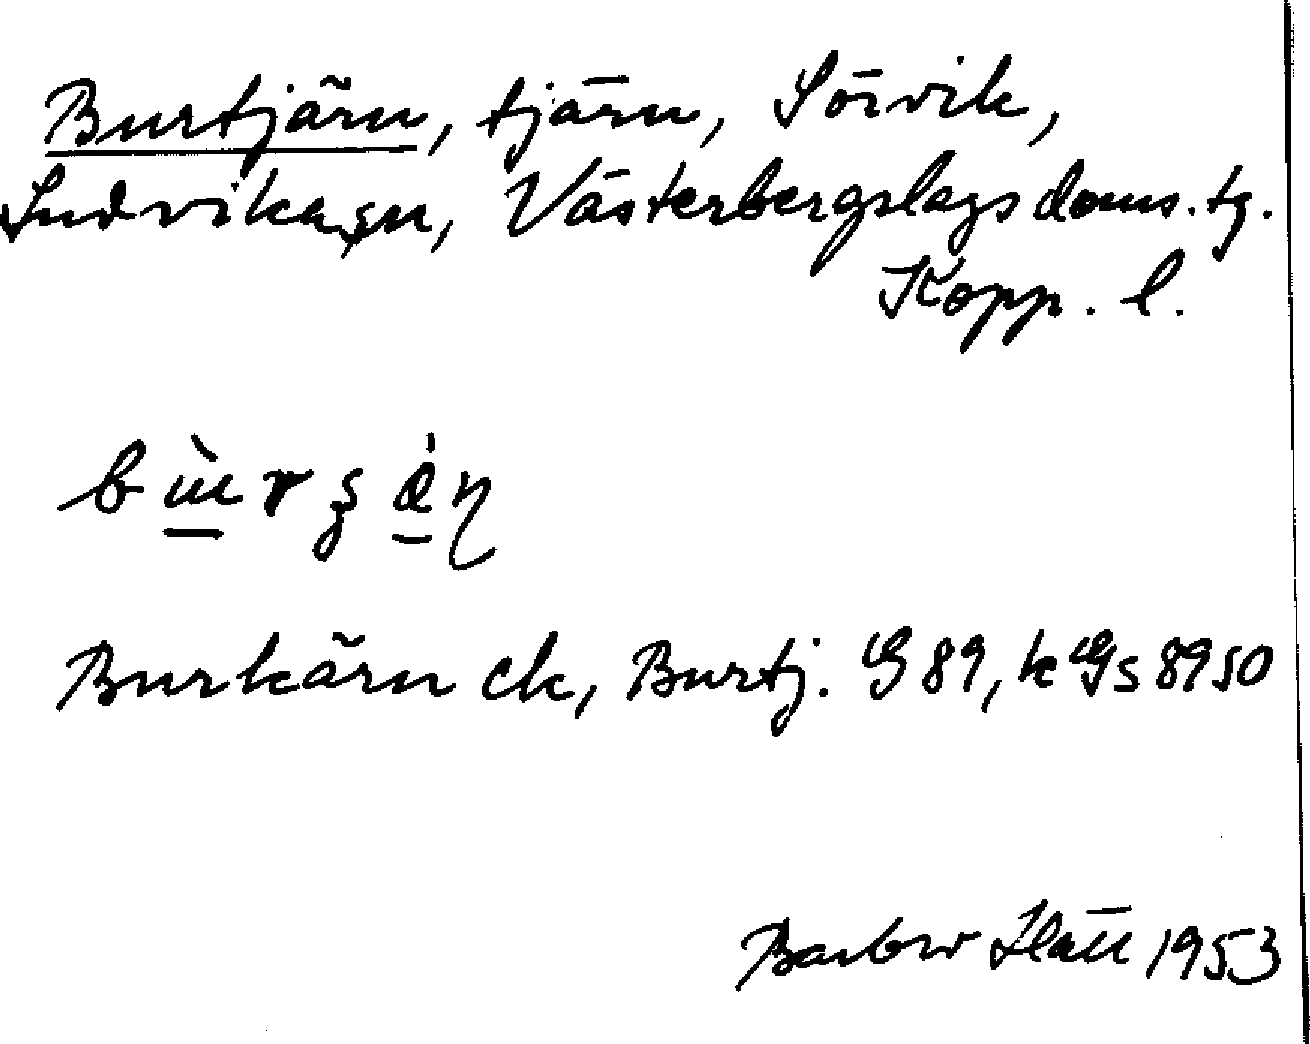 Burtjärn, tjärn, Sörvik,
Ludvika sn, Västerbergslags doms. tg.
Kopp. l.
Burkärn ek, Burtj. G 89, k Gs 8950
1953